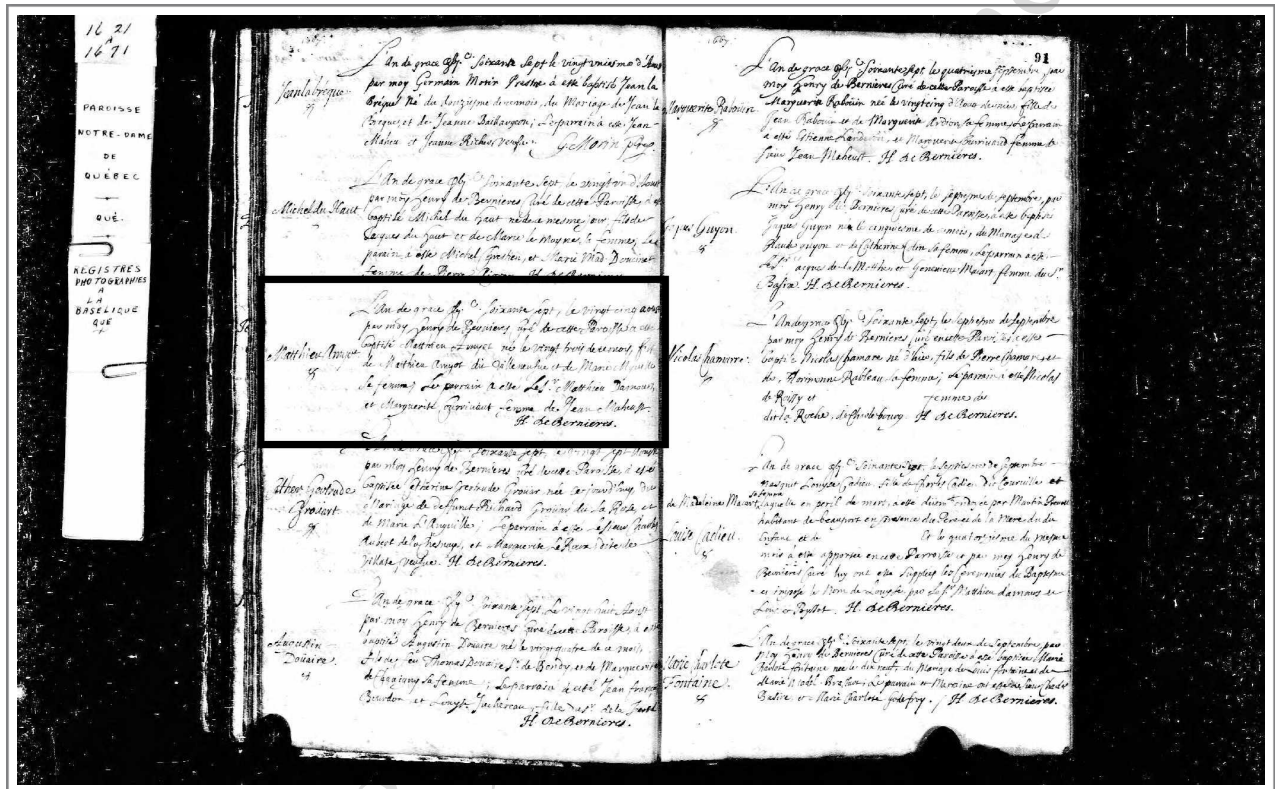 16 21
A
16 71
PAROISSE
NOTRE-DAME
DE
QUÉBEC
QUÉ.
REGISTRES
PHOTOGRAPHIES
A
LA
BASELIQUE
QUÉ
1667
Jean la breque
L'An de grace soixante Sept le vingtuniesme d'Aoust
par moy Germain Morin Prestre a esté baptisé Jean la
Breque Né du du Mariage de Jean la
et de Jeanne Baibargeon; Le parrain a esté Jean
Maheu et Jeanne Richer veufve. G. Morin
Michel du Haut
L'An de grace Soixante Sept, le vingt d'Aoust
par moy Henry de Bernieres Curé de cette Paroisse a esté
baptisé Michel du Haut né de ce mesme jour fils de
Jacques du Haut et de Marie le Moyne sa femme, Le
parain a esté Michel et Marie Mad.
femme de Pierre H. de Bernieres
Matthieu Amyot
L'An de grace soixante sept, le vingt cinq aoust
par moy Henry de Bernieres curé de cette Paroisse a esté
baptisé Matthieu Amyot né le vingt trois de ce mois, fils
de Matthieu Amyot du Villeneufve et de Marie
sa femme, Le parrain a esté Le Sr. Matthieu Damours
et Marguerite femme de Jean Maheust.
H. de Bernieres.
Gertrude
Grouart
soixante sept, le vingt sept Aoust
par moy Henry de Bernieres curé de cette Paroisse, a esté
baptisée Catherine Gertrude Grouar née du
Mariage de deffunct Richard Grouar du La Rose, et
de Marie L'Anguille; Le parrain a esté Charles
Aubert de la Chesnays, et Marguerite Le Roux dite le
Villate, veufve. H. de Bernieres.
Augustin
Douaire
L'An de grace soixante sept, le vingt huit Aoust
par moy Henry de Bernieres Curé de cette Paroisse, a esté
baptisé Augustin Douaire né le vingt quatre de ce mois
fils de feu Thomas Douaire Sr. de Bondy et de Marguerite
de sa femme; Le parrain a esté Jean françois
Bourdon et Louyse Juchereau fille du Sr. de la Ferté
H. de Bernieres.
1667
91
Marguerite Rabouin
L'An de grace Soixante sept, le quatriesme Septembre par
moy Henry de Bernieres Curé de cette Paroisse a esté baptisée
Marguerite Rabouin née le vingt cinq d'Aoust dernier fille de
Jean Rabouin et de Marguerite Ardion sa femme; Le parrain
a esté Estienne et Marguerite femme de
Jean Maheust. H. de Bernieres.
Jacques Guyon
L'An de grace soixante sept, le septiesme de septembre, par
moy Henry de Bernieres, curé de cette Paroisse, a esté baptisé
Jaques Guyon né le cinquiesme de ce mois, du Mariage de
Claude guyon et de Catherine Colin sa femme, Le parrain a esté
Le Sr. Jacque de la Mothe, et Genevieve Macart femme du Sr.
Basire. H. de Bernieres.
Nicolas Chamarre.
L'An de grace Soixante Sept, le septiesme de septembre
par moy Henry de Bernieres curé en cette Paroisse a esté
baptisé Nicolas Chamare né d'hier, fils de Pierre Chamare et
de Florimonne Rableau sa femme; Le parain a esté Nicolas
de Roissy et femme de
dit la Roche, de Charlebourg. H. de Bernieres.
Louise Cadieu.
L'An de grace Soixante Sept, le septiesme de Septembre
nasquit Louyse Cadieu fille de Charles Cadieu dit Courville et
de Madeleine Macart, sa femme laquelle en peril de mort, a esté ondoyée par Martin Prevost
habitant de beauport en presence du Pere et de la Mere du dit
Enfant et de Et le quatorziesme du mesme
mois a esté apportée en cette Paroisse et par moy Henry de
Bernieres Curé luy ont esté supplées les Ceremonies du Baptesme
et imposé le Nom de Louyse, par Le Sr. Matthieu damours et
H. de Bernieres.
Marie Charlote
Fontaine.
L'An de grace soixante sept, le vingt deux de Septembre par
moy Henry de Bernieres Curé de cette Paroisse a esté baptisée Marie
née le dix neuf, du Mariage de Louis fontaine et de
Marie Le parrain et Maraine ont esté Charles
Basire, et Marie Charlote godefroy. H. de Bernieres.